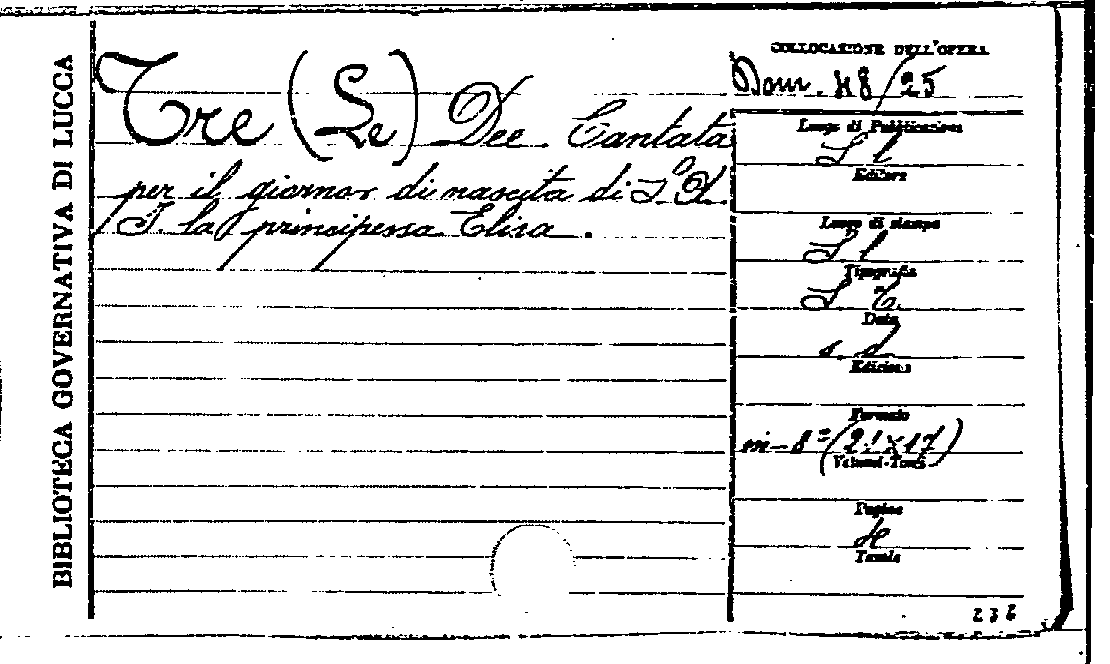 BIBLIOTECA GOVERNATIVA DI LUCCA
Tre (Le) Dee. Cantata
per il giorno di nascita di S. A.
I. la principessa Elisa.
COLLOCAZIONE DELL'OPERA
Dom. 48/25
Luogo di Pubblicazione
S l
Editore
Luogo di stampa
S l
Tipografia
S T.
Data
s. d
Edizione
Formato
in-8º (21x17)
Volumi-Tomi
Pagine
Tavole